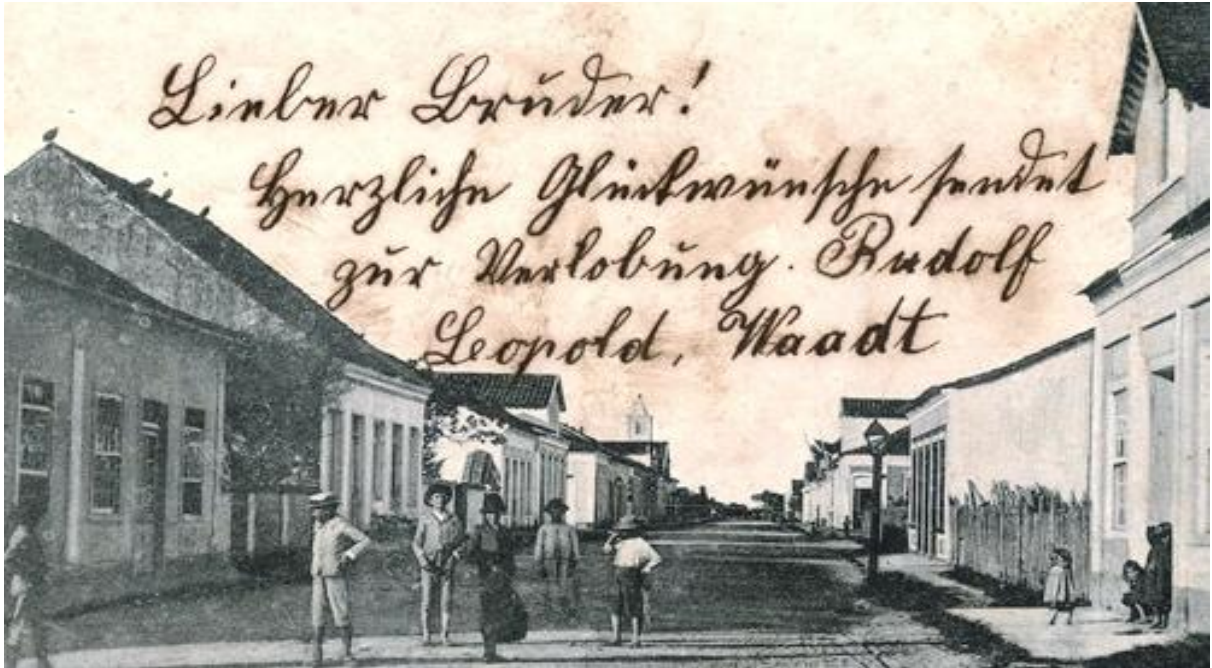 Lieber Bruder!
Herzliche Glückwünsche sendet
zur Verlobung. Rudolf
Leopold, Waadt